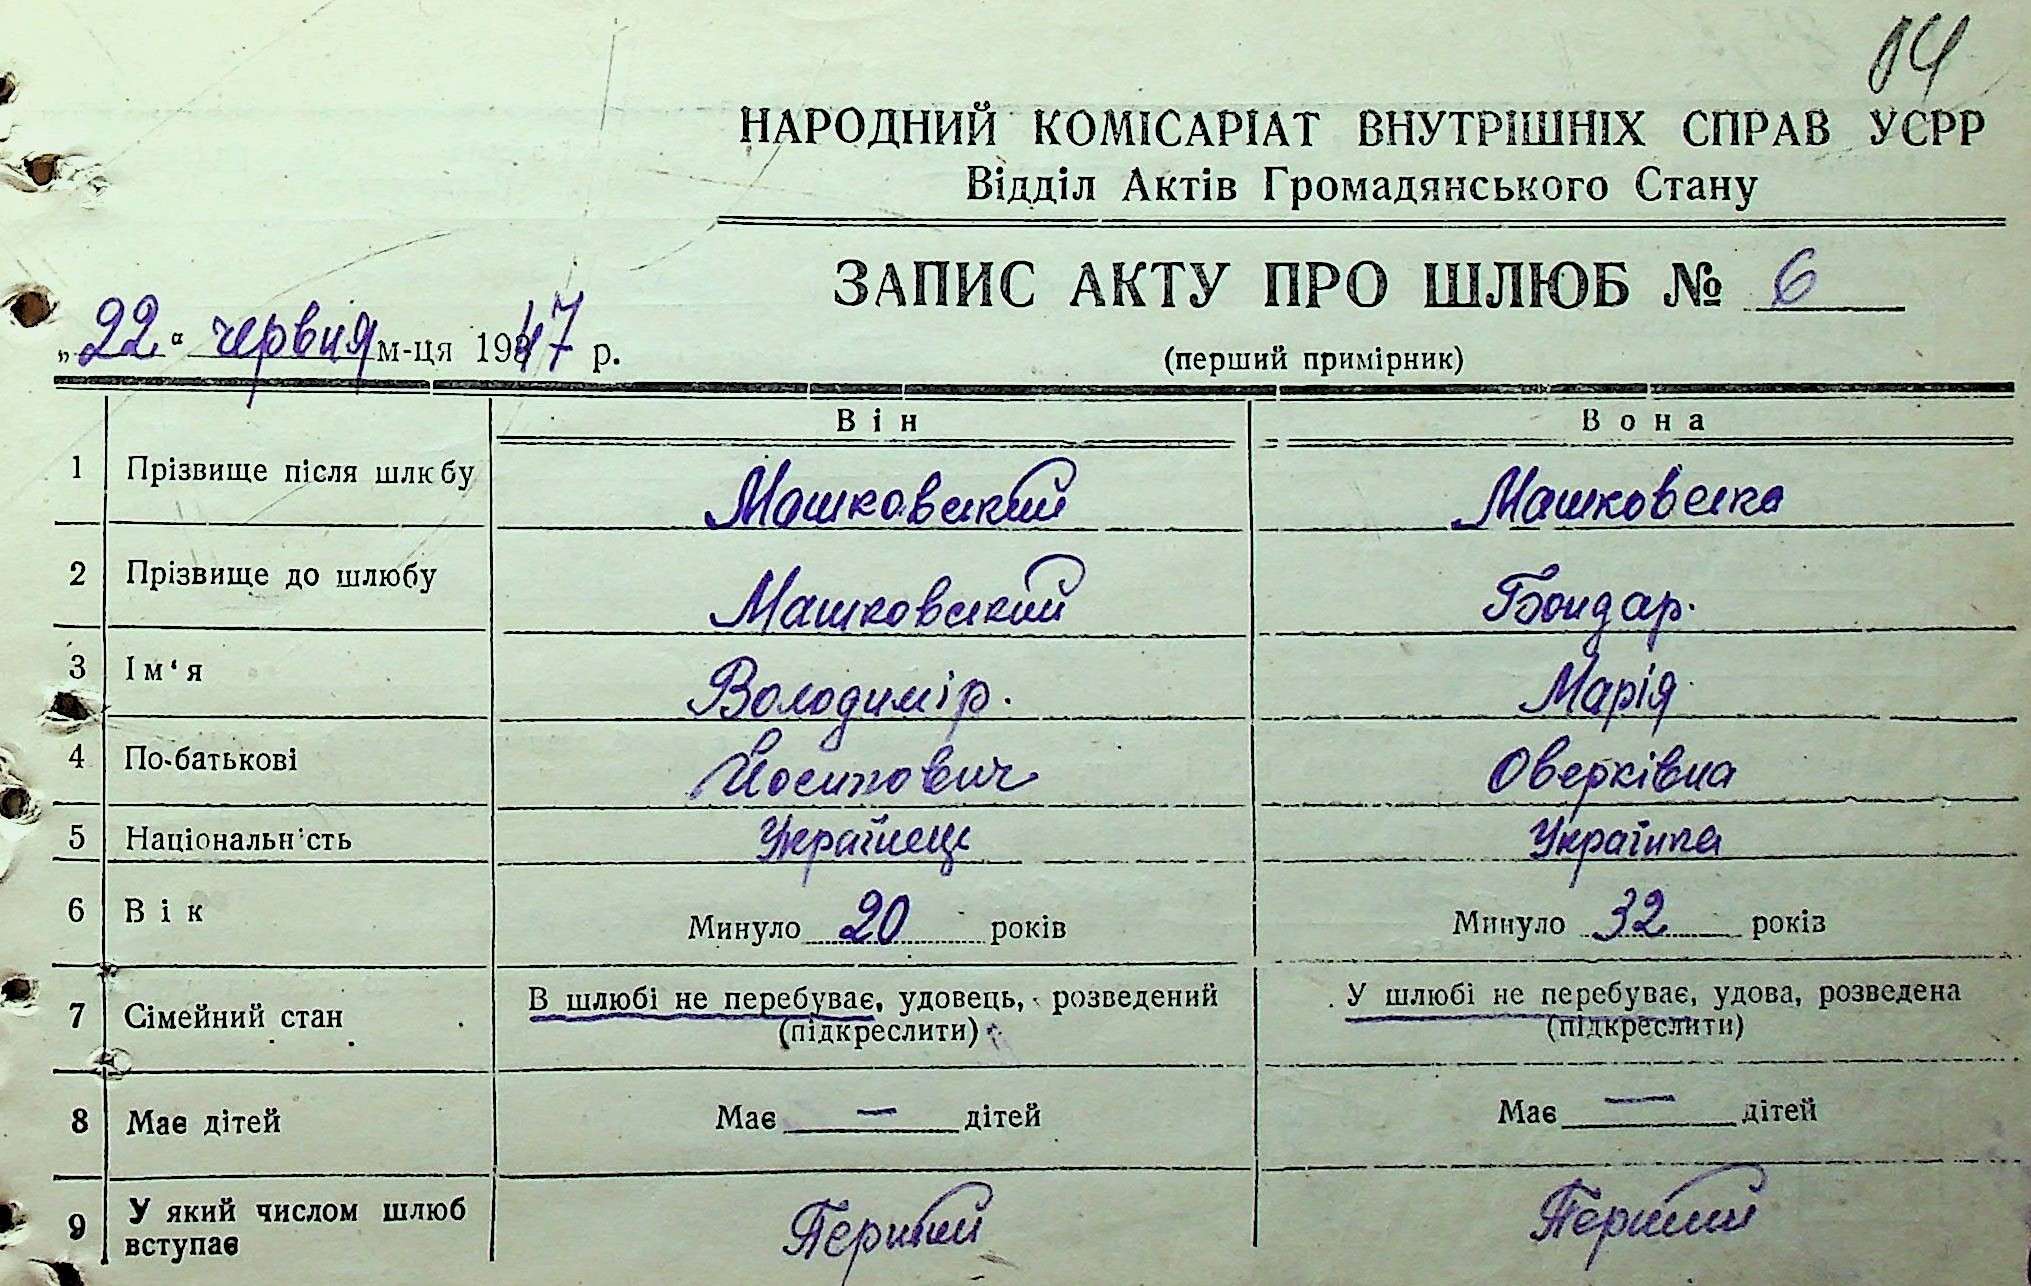 14
НАРОДНИЙ КОМІСАРІАТ ВНУТРІШНІХ СПРАВ УСРР
Відділ Актів Громадянського Стану
ЗАПИС АКТУ ПРО ШЛЮБ № 6
„22“ червня м-ця 1947 р.
(перший примірник)
Він Вона
1 Прізвище після шлюбу Машковський Машковська
2 Прізвище до шлюбу Машковський Бондар.
3 Ім'я Володимір. Марія
4 По-батькові Йосипович Оверківна
5 Національність Українець Українка
6 Вік Минуло 20 років Минуло 32 років
7 Сімейний стан В шлюбі не перебуває, удовець, розведений У шлюбі не перебуває, удова, розведена
(підкреслити) (підкреслити)
8 Має дітей Має — дітей Має — дітей
9 У який числом шлюб вступає Перший Перший